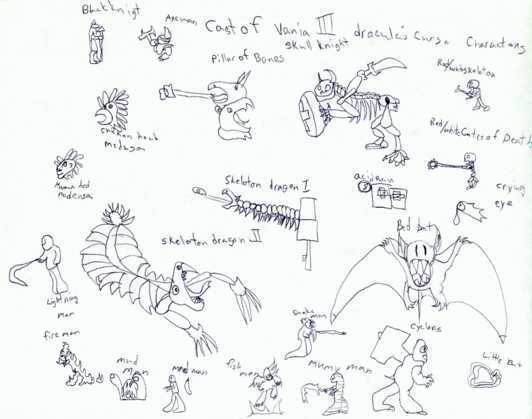 Black knigt
Axeman
Cast of Vania III dracula's Curse Charactors
skull knight
Pillar of Bones
Red/white skeleton
chicken head
medusa
Red/white Gates of Death
Skeleton dragon I
acid
crying
eye
skeleton dragon II
Bed bat
Lightning
man
snake
man
cyclops
fire man
mud
man
mud man
fish
man
mumy man
Little Bat